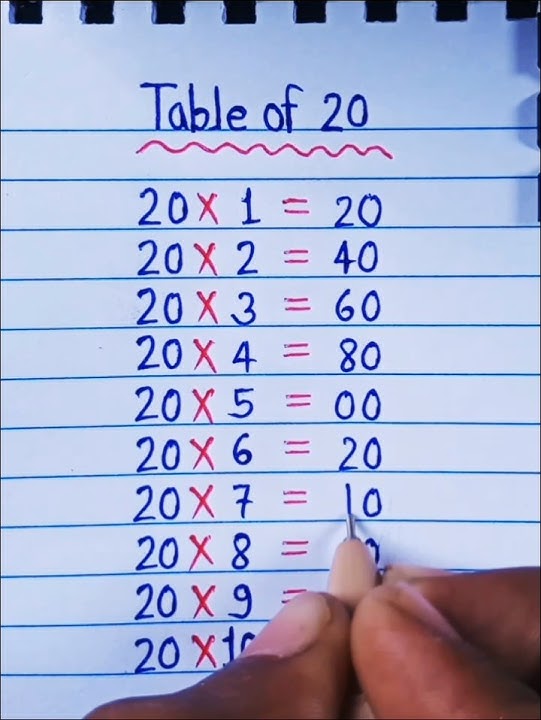 Table of 20
20 X 1 = 20
20 X 2 = 40
20 X 3 = 60
20 X 4 = 80
20 X 5 = 00
20 X 6 = 20
20 X 7 = 10
20 X 8 =
20 X 9 =
20 X 10